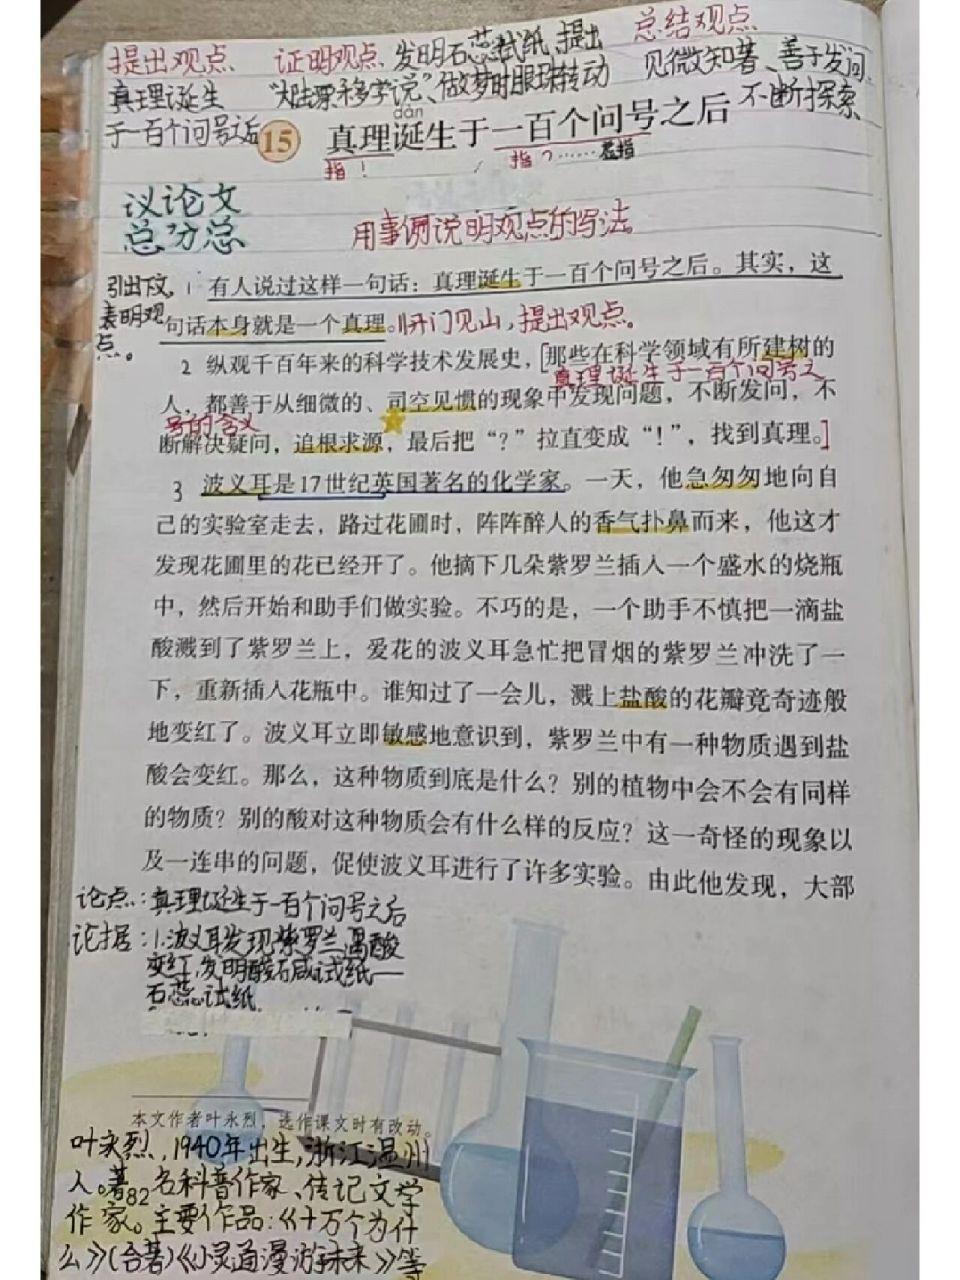 提出观点、 证明观点、发明石蕊试纸、提出 总结观点
真理诞生 “大陆漂移学说”、做梦时眼珠转动 见微知著、善于发问、
于一百个问号之后 不断探索
dàn
15 真理诞生于一百个问号之后
指! 指?……
议论文
总分总
用事例说明观点的写法。
引出下文,
表明观
点。
1 有人说过这样一句话：真理诞生于一百个问号之后。其实，这
句话本身就是一个真理。开门见山,提出观点。
2 纵观千百年来的科学技术发展史，[那些在科学领域有所建树的
真理诞生于一百个问号之
人，都善于从细微的、司空见惯的现象中发现问题，不断发问，不
号的含义
断解决疑问，追根求源，最后把“？”拉直变成“！”，找到真理。]
3 波义耳是17世纪英国著名的化学家。一天，他急匆匆地向自
己的实验室走去，路过花圃时，阵阵醉人的香气扑鼻而来，他这才
发现花圃里的花已经开了。他摘下几朵紫罗兰插入一个盛水的烧瓶
中，然后开始和助手们做实验。不巧的是，一个助手不慎把一滴盐
酸溅到了紫罗兰上，爱花的波义耳急忙把冒烟的紫罗兰冲洗了一
下，重新插入花瓶中。谁知过了一会儿，溅上盐酸的花瓣竟奇迹般
地变红了。波义耳立即敏感地意识到，紫罗兰中有一种物质遇到盐
酸会变红。那么，这种物质到底是什么？别的植物中会不会有同样
的物质？别的酸对这种物质会有什么样的反应？这一奇怪的现象以
及一连串的问题，促使波义耳进行了许多实验。由此他发现，大部
论点:真理诞生于一百个问号之后
论据:1.波义耳发现紫罗兰遇酸
变红,发明酸碱试纸—
石蕊试纸
本文作者叶永烈，选作课文时有改动。
叶永烈,1940年出生,浙江温州
人。著名科普作家、传记文学
82
作家。主要作品:《十万个为什
么》(合著)《小灵通漫游未来》等